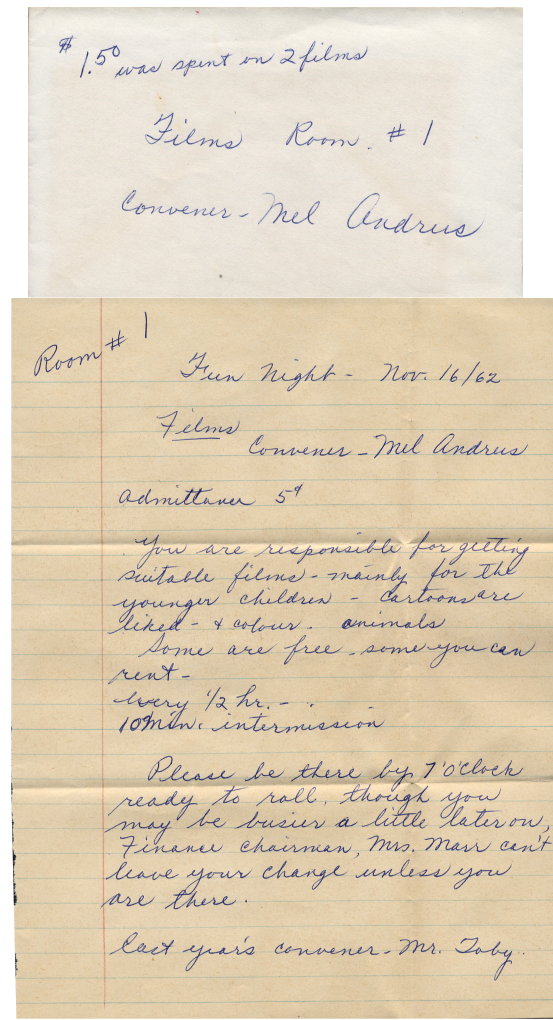 $1.50 was spent on 2 films
Films Room #1
Convener - Mel Andrus
Room #1
Fun Night - Nov. 16/62
Films
Convener - Mel Andrus
Admittance 5¢
You are responsible for getting
suitable films - mainly for the
younger children - cartoons are
liked - & colour. animals
Some are free - some you can
rent -
Every 1/2 hr. -
10 min. intermission
Please be there by 7 o'clock
ready to roll, though you
may be busier a little later on,
Finance chairman, Mrs. Marr can't
leave your change unless you
are there.
Last year's convener - Mr. Toby.